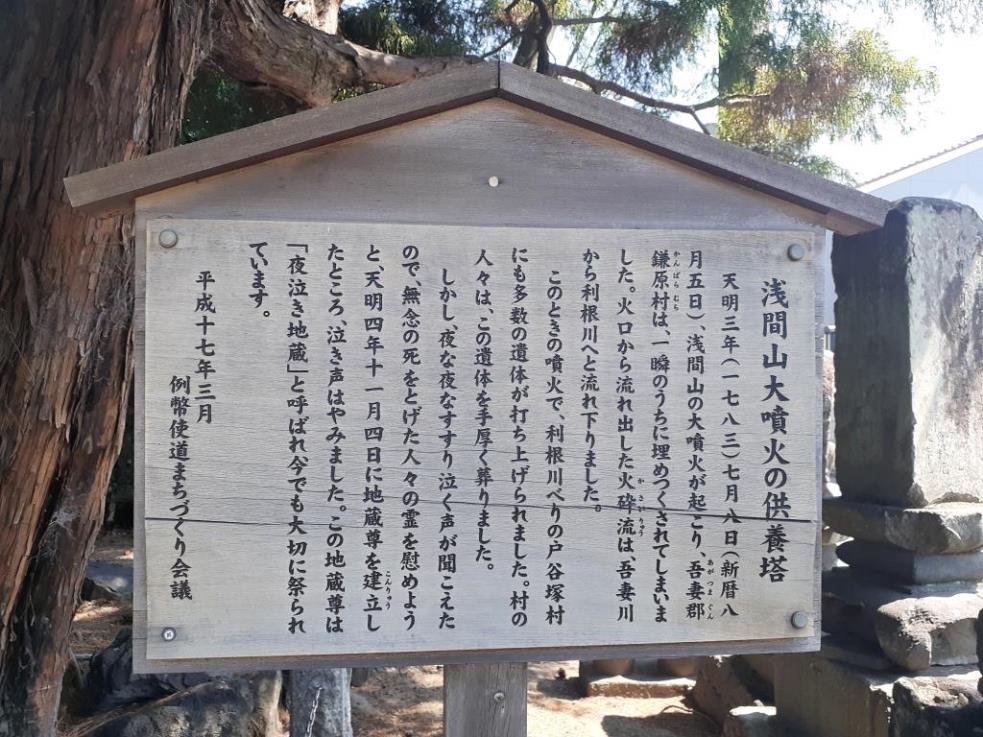 浅間山大噴火の供養塔
天明三年(一七八三)七月八日(新暦八
月五日)、浅間山の大噴火が起こり、吾妻郡
あがつまぐん
鎌原村は、一瞬のうちに埋めつくされてしまいま
かんばらむら
した。火口から流れ出した火砕流は、吾妻川
かさいりゅう
から利根川へと流れ下りました。
このときの噴火で、利根川べりの戸谷塚村
にも多数の遺体が打ち上げられました。村の
人々は、この遺体を手厚く葬りました。
しかし、夜な夜なすすり泣く声が聞こえた
ので、無念の死をとげた人々の霊を慰めよう
と、天明四年十一月四日に地蔵尊を建立し
こんりゅう
たところ、泣き声はやみました。この地蔵尊は
「夜泣き地蔵」と呼ばれ今でも大切に祭られ
ています。
平成十七年三月
例幣使道まちづくり会議